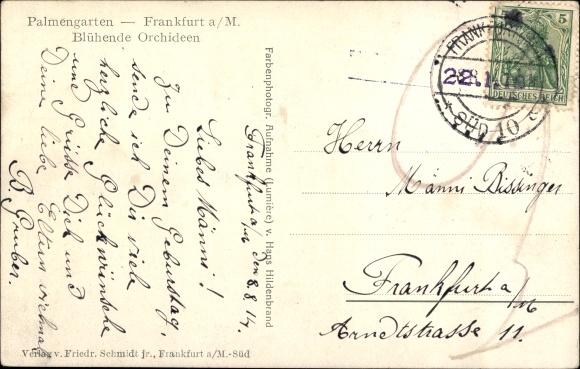 Palmengarten — Frankfurt a/M.
Blühende Orchideen
Frankfurt a/M den 8.8.14.
Liebes Männi!
Zu Deinem Geburtstag,
sende ich Dir viele
herzliche Glückwünsche
und Grüsse Dich und
Deine liebe Eltern vielmal
B. Gruber.
Verlag v. Friedr. Schmidt jr., Frankfurt a/M.-Süd
Farbenphotogr. Aufnahme (Lumière) v. Hans Hildenbrand
5
DEUTSCHES REICH
FRANKFURT
SÜD 10
Herrn
Männi Bissinger
Frankfurt a/M
Arndtstrasse 11.